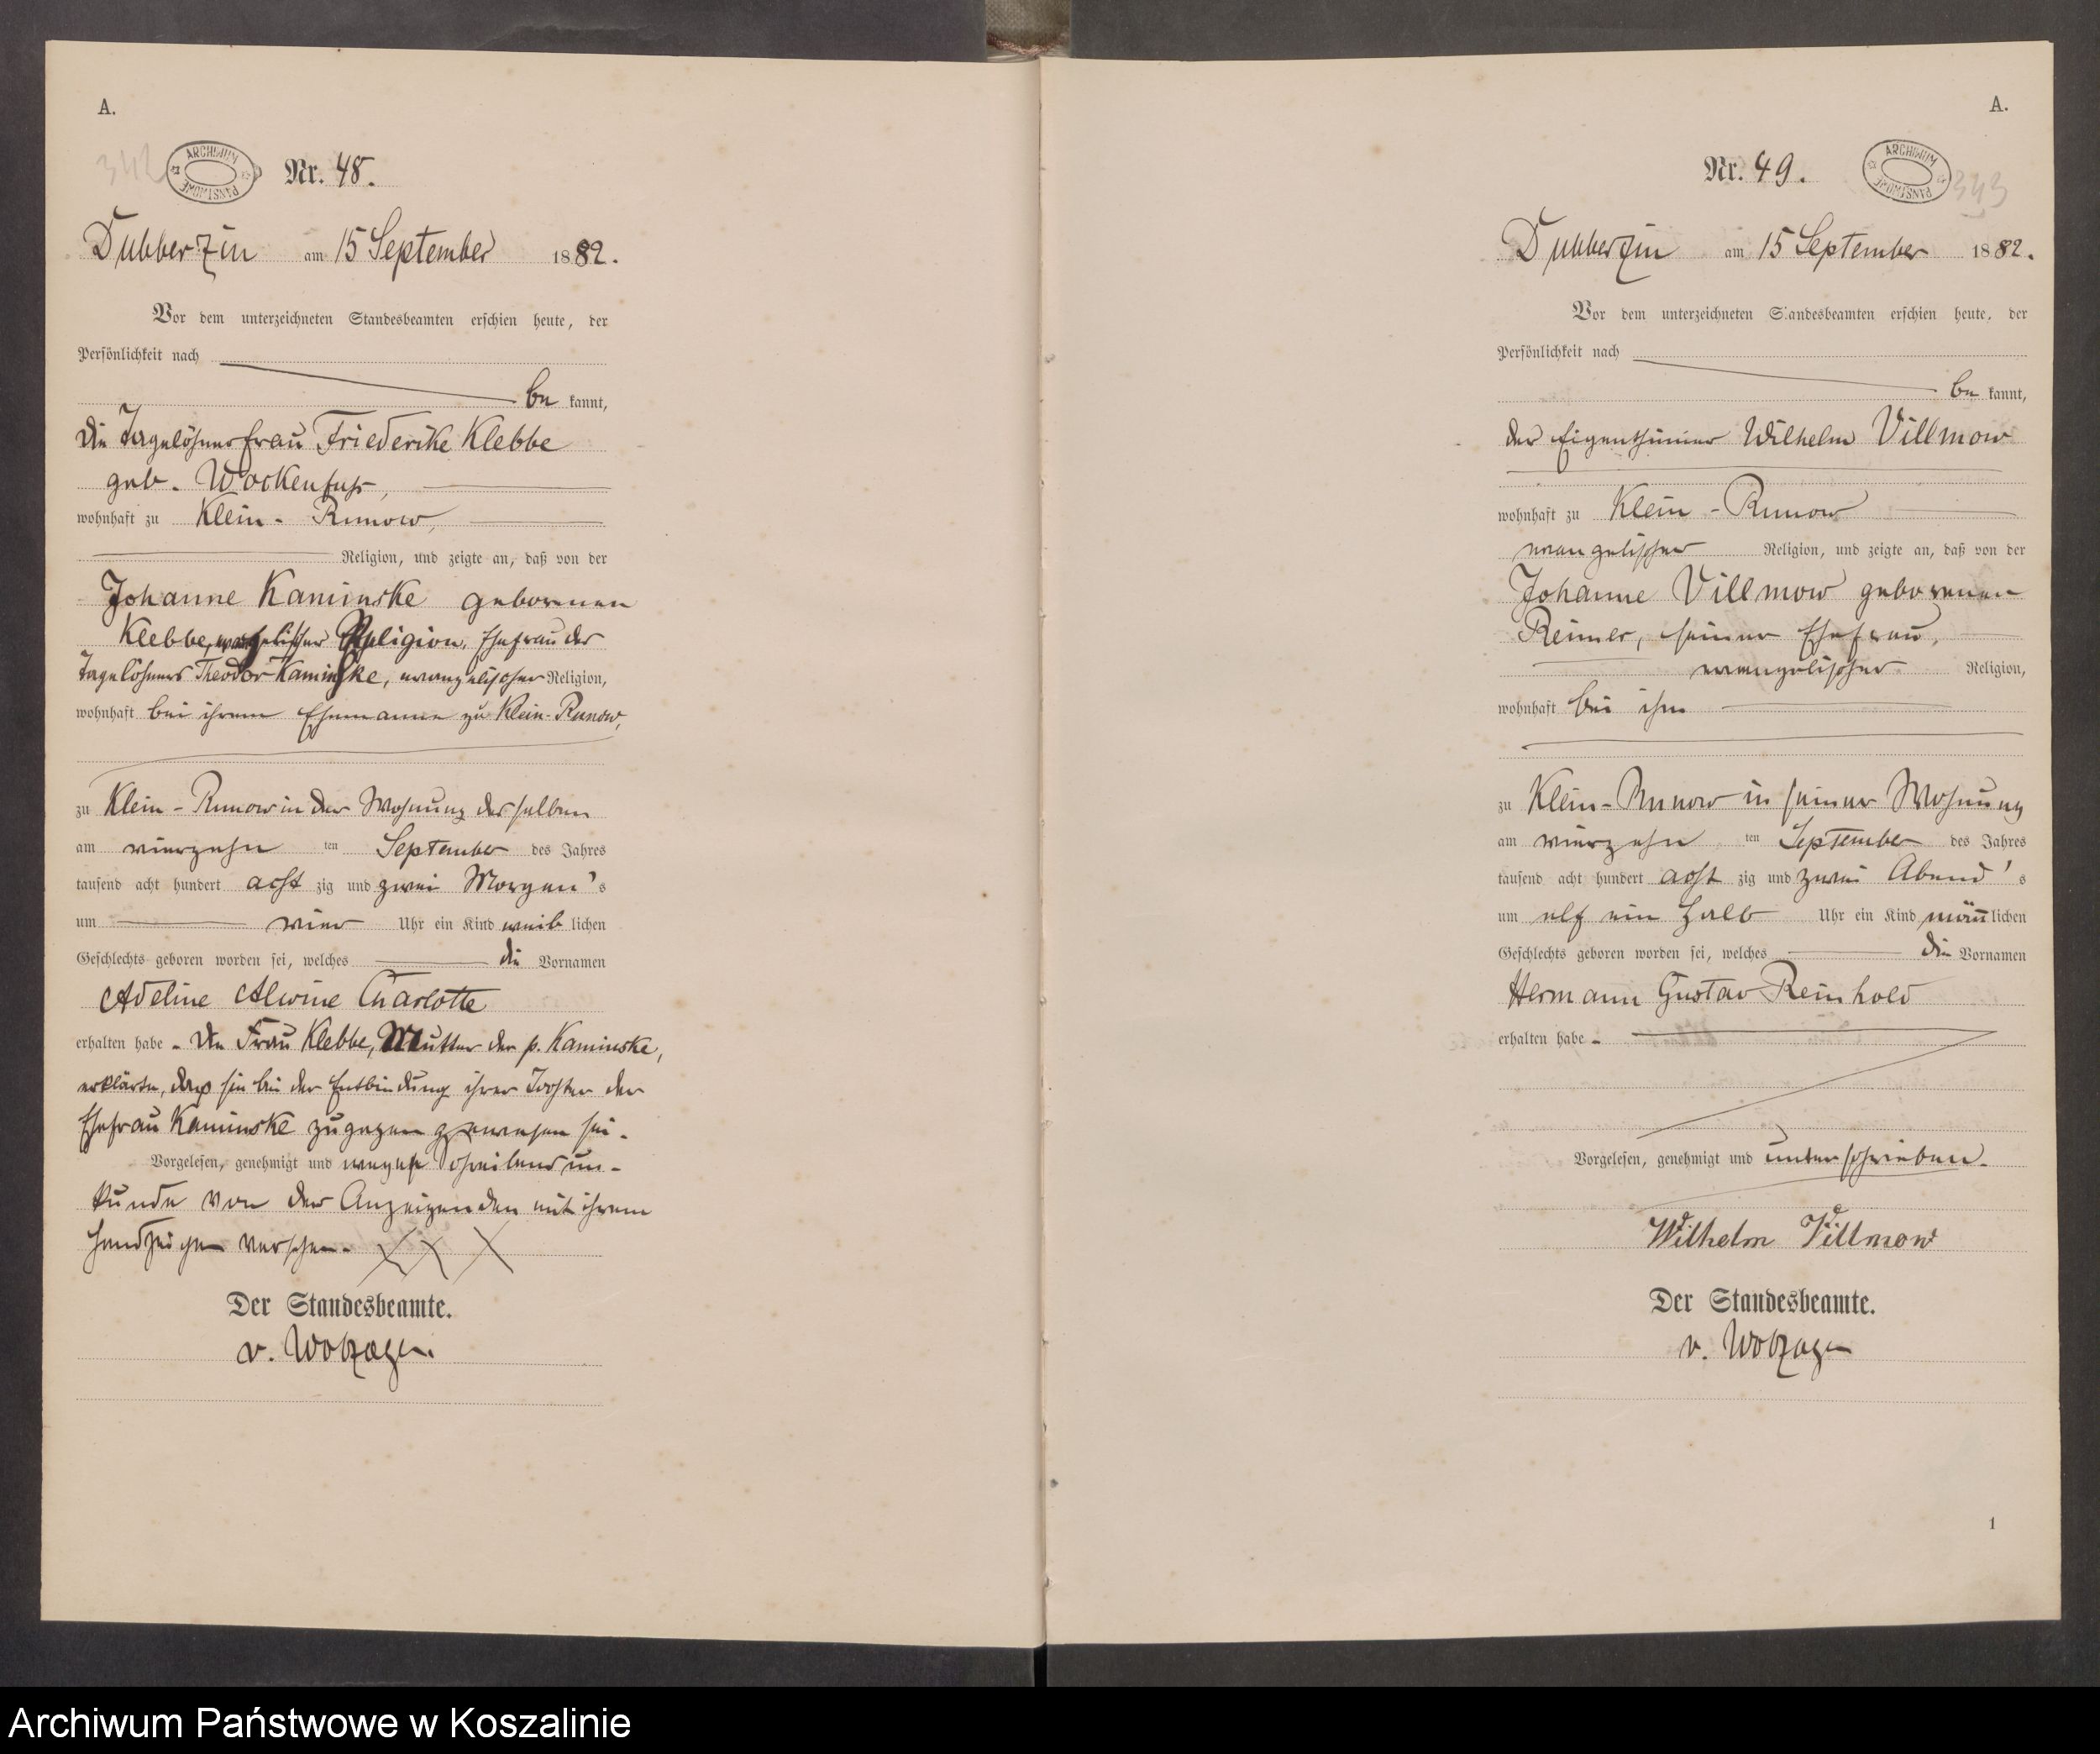 A.
342
ARCHIWUM PAŃSTWOWE
Nr. 48.
Dubberzin am 15 September 1882.
Vor dem unterzeichneten Standesbeamten erschien heute, der
Persönlichkeit nach
be kannt,
die Tagelöhnerfrau Friederike Klebbe
geb. Wockenfuß,
wohnhaft zu Klein-Runow,
Religion, und zeigte an, daß von der
Johanne Kaminske gebornen
Klebbe, evangelischer Religion, Ehefrau des
Tagelöhners Theodor Kaminske, evangelischer Religion,
wohnhaft bei ihrem Ehemanne zu Klein-Runow,
zu Klein-Runow in der Wohnung derselben
am vierzehn ten September des Jahres
tausend acht hundert acht zig und zwei Morgen's
um vier Uhr ein Kind weib lichen
Geschlechts geboren worden sei, welches die Vornamen
Adeline Alwine Charlotte
erhalten habe. Die Frau Klebbe, Mutter der p. Kaminske,
erklärte, daß sie bei der Entbindung ihrer Tochter der
Ehefrau Kaminske zugegen gewesen sei.
Vorgelesen, genehmigt und wegen Schreibens un-
kunde von der Anzeigenden mit ihrem
Handzeichen versehen. XXX
Der Standesbeamte.
v. Wolzogen.
A.
Nr. 49.
ARCHIWUM PAŃSTWOWE
343
Dubberzin am 15 September 1882.
Vor dem unterzeichneten Standesbeamten erschien heute, der
Persönlichkeit nach
be kannt,
der Eigenthümer Wilhelm Villmow
wohnhaft zu Klein-Runow
evangelischer Religion, und zeigte an, daß von der
Johanne Villmow geborenen
Reimer, seiner Ehefrau,
evangelischer Religion,
wohnhaft bei ihm
zu Klein-Runow in seiner Wohnung
am vierzehn ten September des Jahres
tausend acht hundert acht zig und zwei Abend's
um elf ein halb Uhr ein Kind männlichen
Geschlechts geboren worden sei, welches die Vornamen
Hermann Gustav Reinhold
erhalten habe.
Vorgelesen, genehmigt und unterschrieben.
Wilhelm Villmow
Der Standesbeamte.
v. Wolzogen
1
Archiwum Państwowe w Koszalinie